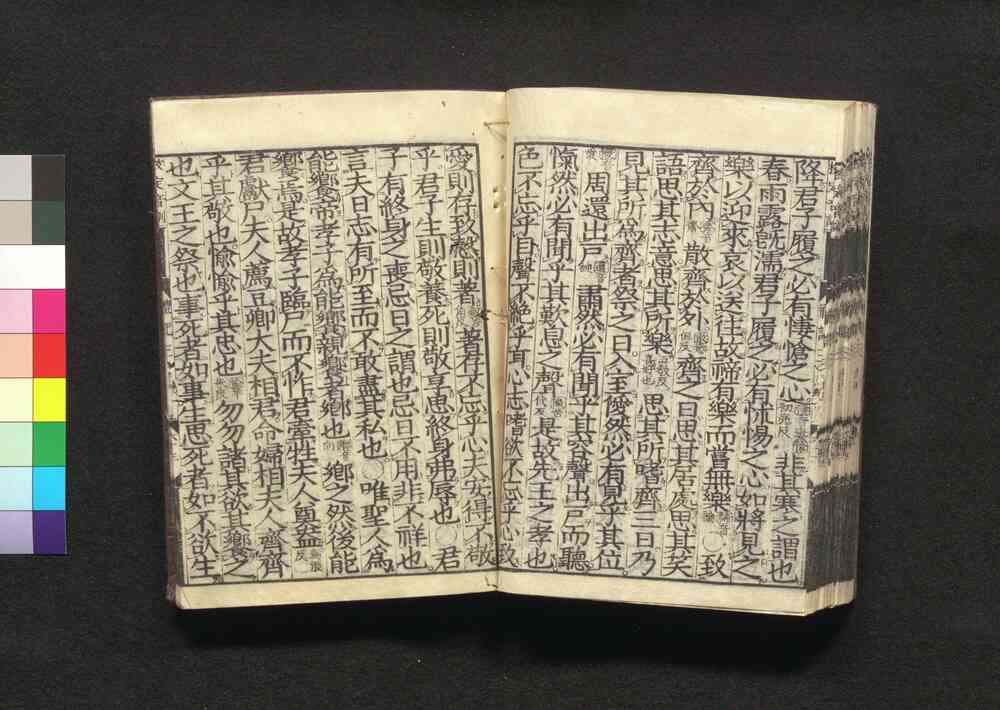 降君子履之必有悽愴之心初亮反非其寒之謂也
春雨露既濡君子履之必有怵惕之心如將見之
樂以迎來哀以送往故禘有樂而嘗無樂○致
齊於內散齊於外齊之日思其居處思其笑
語思其志意思其所樂思其所嗜齊三日乃
見其所爲齊者祭之日入室僾然必有見乎其位
周還出戶肅然必有聞乎其容聲出戶而聽
愾然必有聞乎其歎息之聲是故先王之孝也
色不忘乎目聲不絕乎耳心志嗜欲不忘乎心致
愛則存致慤則著著存不忘乎心夫安得不敬
乎君子生則敬養死則敬享思終身弗辱也○君
子有終身之喪忌日之謂也忌日不用非不祥也
言夫日志有所至而不敢盡其私也○唯聖人爲
能饗帝孝子爲能饗親饗者鄉也鄉之然後能
饗焉是故孝子臨尸而不怍君牽牲夫人奠盎
君獻尸夫人薦豆卿大夫相君命婦相夫人齊齊
乎其敬也愉愉乎其忠也勿勿諸其欲其饗之
也文王之祭也事死者如事生思死者如不欲生